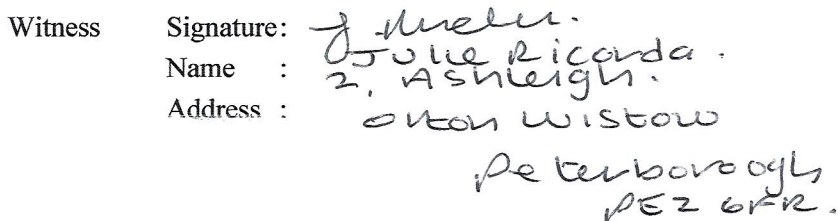 Witness Signature:
Name : Julie Ricarda.
2, Ashleigh.
Address : Orton Wistow
Peterborough
PE2 6FR.